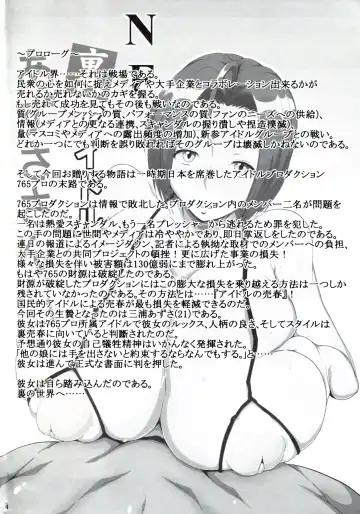 NE
裏アイドル
あずさ
～プロローグ～
アイドル界……それは戦場である。
民衆の心を如何に捉えメディアや大手企業とコラボレーション出来るかが
売れるか売れないかのカギを握る。
もし売れて成功を見てもその後も戦いなのである。
質(グループメンバーの質、パフォーマンスの質、ファンのニーズへの供給)、
情報(メディアとの更なる連携、スキャンダルの握り潰しや捏造撲滅)、
量(マスコミやメディアへの露出頻度の増加)、新参アイドルグループとの戦い。
どれか一つにでも判断を誤り敗れればそのグループは壊滅しかねないのである。
そして今回お贈りする物語は一時期日本を席巻したアイドルプロダクション
765プロの末路である。
765プロダクションは情報で敗北した。プロダクション内のメンバー二名が問題を
起こしたのだ。
一名は熱愛スキャンダル、もう一名プレッシャーから逃れるため罪を犯した。
この手の問題に世間やメディアは冷ややかであり、即日掌返しをしたのだ。
連日の報道によるイメージダウン、記者による執拗な取材でのメンバーへの負担、
大手企業との共同プロジェクトの頓挫！更に広げた事業の損失！
様々な損失を伴い被害額は130億弱にまで膨れ上がった。
もはや765の財源は破綻したのである。
財源が破綻したプロダクションにはこの膨大な損失を乗り越える方法は一つしか
残されていなかったのである。その方法とは……『アイドルの売春』！
国民的アイドルによる売春が最も損失を軽減できるのだ！
今回その生贄となったのは三浦あずさ(21)である。
彼女は765プロ所属アイドルで彼女のルックス、人柄の良さ、そしてスタイルは
裏売春に向いていると判断されたのだ。
予想通り彼女の自己犠牲精神はいかんなく発揮された。
「他の娘には手を出さないと約束するならなんでもする。」と……
彼女は進んで正式な書面に判を押した。
彼女は自ら踏み込んだのである。
裏の世界へ…
4